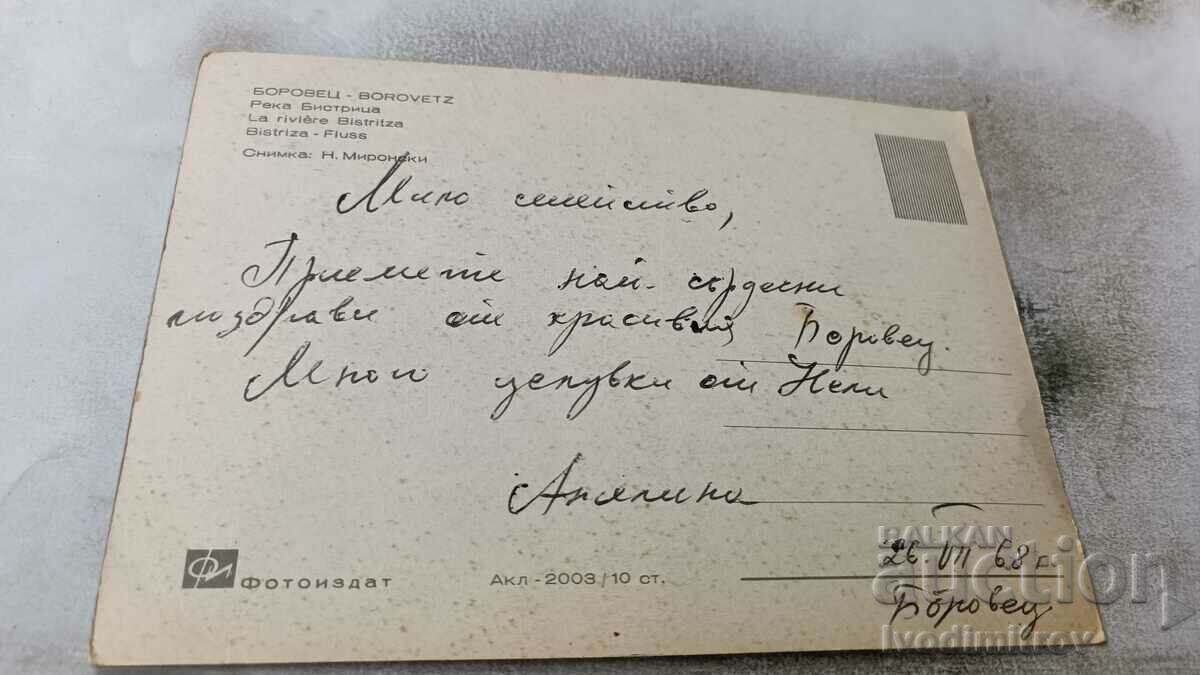 БОРОВЕЦ - BOROVETZ
Река Бистрица
La rivière Bistritza
Bistriza - Fluss
Снимка: Н. Миронски
Мило семейство,
Приемете най-сърдечни
поздрави от красивия Боровец.
Много целувки от Нели
Анжелина
26. VII 68 г.
Боровец
ФОТОИЗДАТ
Акл - 2003/10 ст.
BALKAN
auction
Ivodimitrov